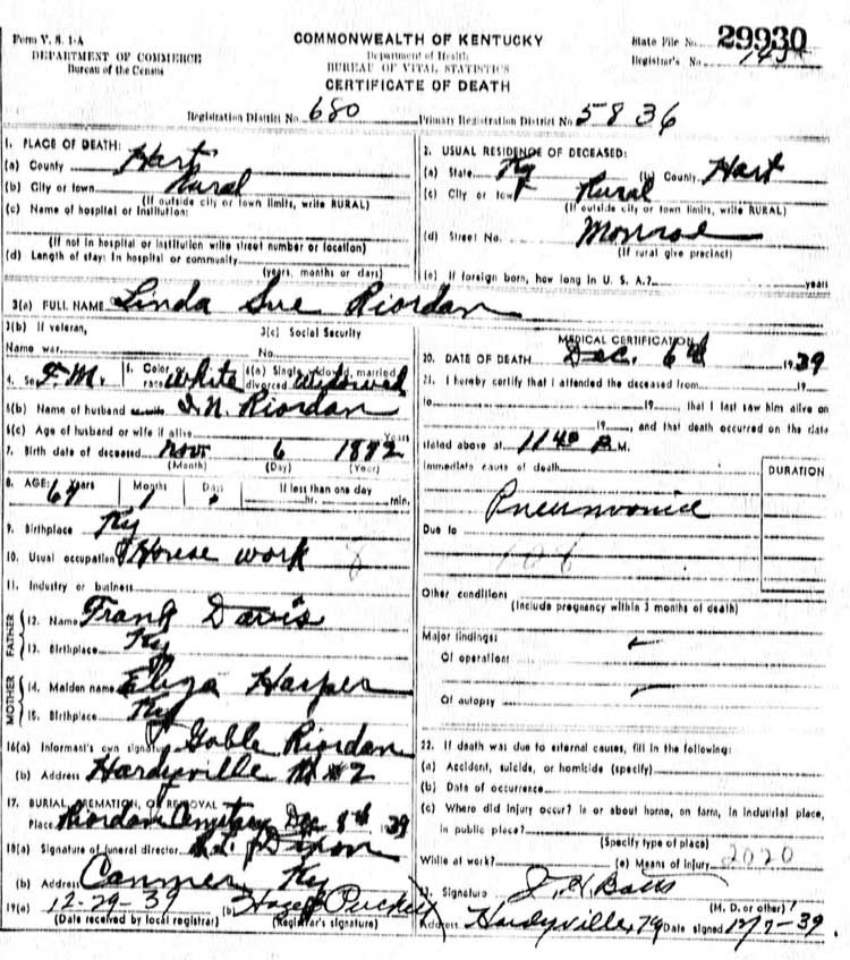 Form V. S. 1-A
DEPARTMENT OF COMMERCE
Bureau of the Census
COMMONWEALTH OF KENTUCKY
Department of Health
BUREAU OF VITAL STATISTICS
CERTIFICATE OF DEATH
State File No. 29930
Registrar's No.
Registration District No. 680 Primary Registration District No. 5836
1. PLACE OF DEATH:
(a) County Hart
(b) City or town Rural
(If outside city or town limits, write RURAL)
(c) Name of hospital or institution:
(If not in hospital or institution write street number or location)
(d) Length of stay: In hospital or community
(years, months or days)
2. USUAL RESIDENCE OF DECEASED:
(a) State Ky (b) County Hart
(c) City or town Rural
(If outside city or town limits, write RURAL)
(d) Street No. Monroe
(If rural give precinct)
(e) If foreign born, how long in U. S. A.? years
3(a) FULL NAME Linda Sue Riordan
3(b) If veteran,
Name war
3(c) Social Security
No.
4. Sex F.M. 5. Color race White 6(a) Single, widowed, married divorced Widowed
6(b) Name of husband I. N. Riordan
6(c) Age of husband or wife if alive Years
7. Birth date of deceased Nov. 6 1872
(Month) (Day) (Year)
8. AGE: 67 Years Months 1 Days If less than one day hr. min.
9. Birthplace Ky
10. Usual occupation House work
11. Industry or business
FATHER
12. Name Frank Davis
13. Birthplace Ky
MOTHER
14. Maiden name Eliza Harper
15. Birthplace Ky
16(a) Informant's own signature Goble Riordan
(b) Address Hardyville R #2
17. BURIAL, CREMATION, OR REMOVAL
Place Riordan Cemetary Dec 8th 39
18(a) Signature of funeral director Dixon
(b) Address Canmer Ky
19(a) 12-29-39 (b) Hazel Puckett
(Date received by local registrar) (Registrar's signature)
MEDICAL CERTIFICATION
20. DATE OF DEATH Dec. 6th 1939
21. I hereby certify that I attended the deceased from 19
to 19, that I last saw him alive on
19, and that death occurred on the date
stated above at 1140 P.M.
Immediate cause of death DURATION
Pneumonia
Due to
108
Other conditions
(Include pregnancy within 3 months of death)
Major findings:
Of operation:
Of autopsy
22. If death was due to external causes, fill in the following:
(a) Accident, suicide, or homicide (specify)
(b) Date of occurrence
(c) Where did injury occur? in or about home, on farm, in industrial place,
in public place?
(Specify type of place)
While at work? (e) Means of injury 2020
23. Signature
(M. D. or other)
Address Hardyville, Ky Date signed 12/7-39